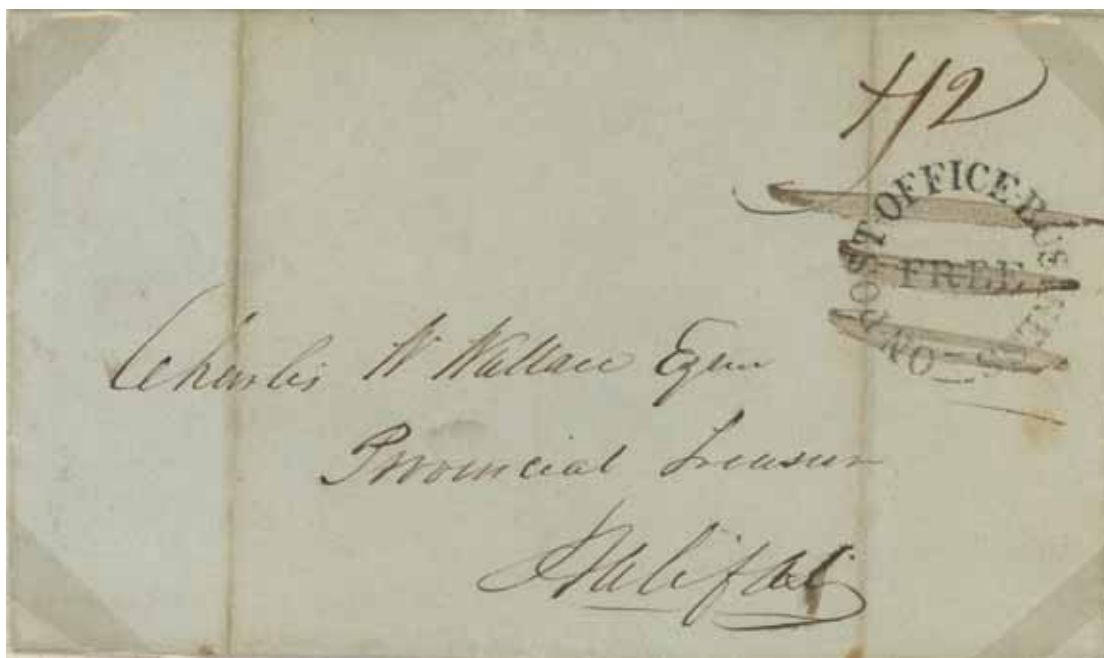 1/2
POST·OFFICE·BUSINESS·NO
FREE
Charles W Wallace Esqr
Provincial Treasurer
Halifax